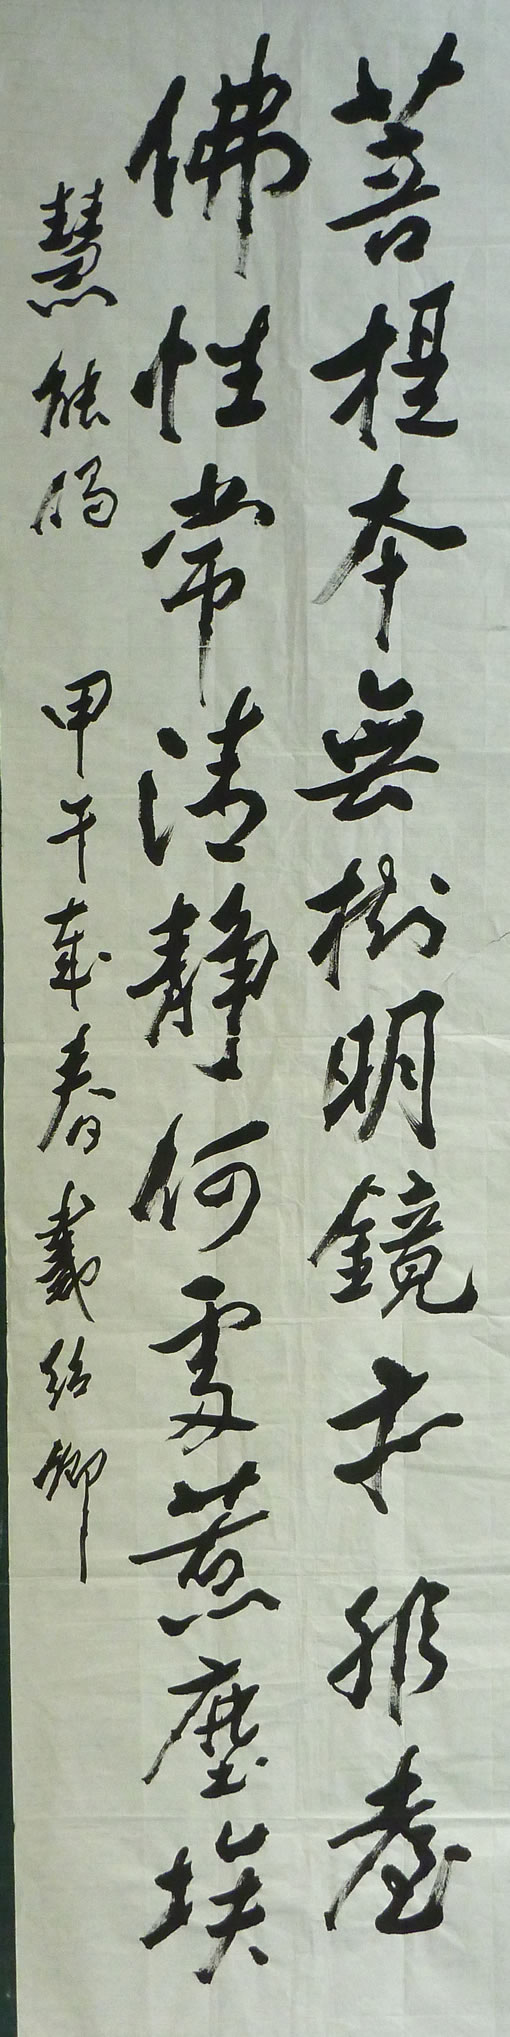 菩提本無樹明鏡才非臺
佛性常清靜何處惹塵埃
慧能偈 甲午歲春戴紹卿